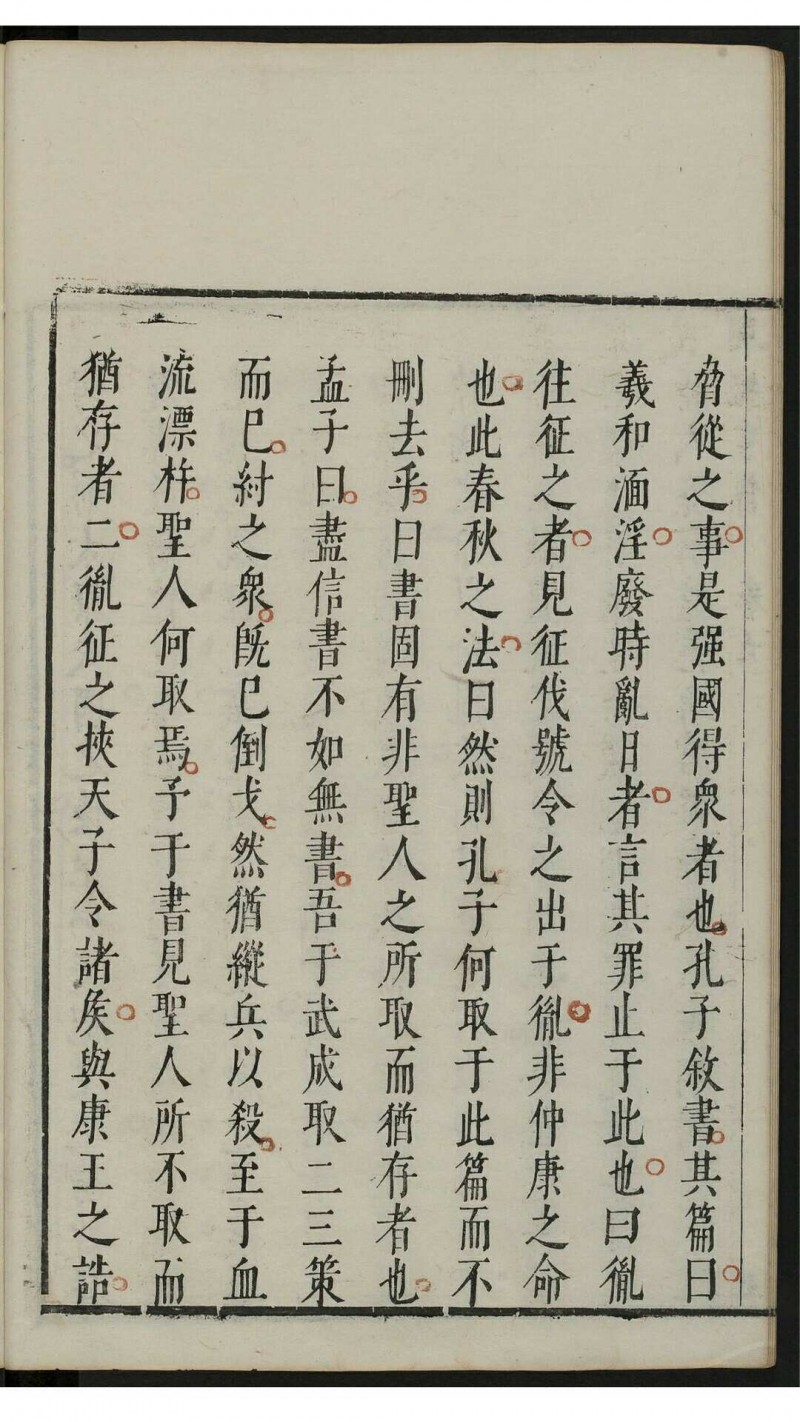 脅從之事是强國得衆者也孔子敘書其篇曰
羲和湎淫廢時亂日者言其罪止于此也曰胤
往征之者見征伐號令之出于胤非仲康之命
也此春秋之法曰然則孔子何取于此篇而不
刪去乎曰書固有非聖人之所取而猶存者也
孟子曰盡信書不如無書吾于武成取二三策
而巳紂之衆旣巳倒戈然猶縱兵以殺至于血
流漂杵聖人何取焉予于書見聖人所不取而
猶存者二胤征之挾天子令諸矦與康王之誥